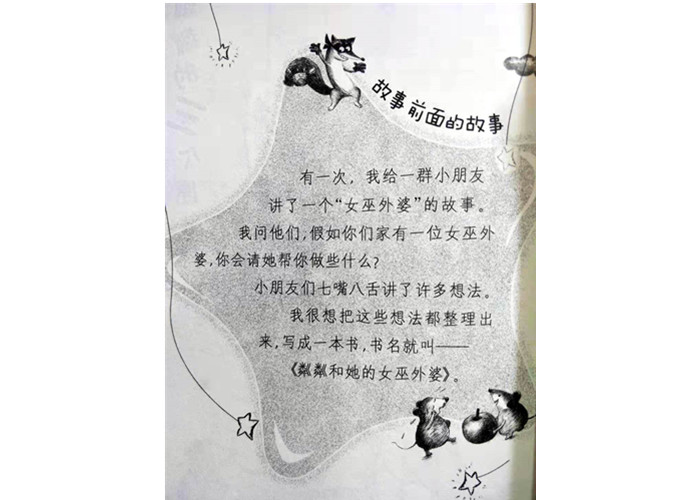 故事前面的故事
有一次，我给一群小朋友
讲了一个“女巫外婆”的故事。
我问他们，假如你们家有一位女巫外
婆，你会请她帮你做些什么？
小朋友们七嘴八舌讲了许多想法。
我很想把这些想法都整理出
来，写成一本书，书名就叫——
《粼粼和她的女巫外婆》。